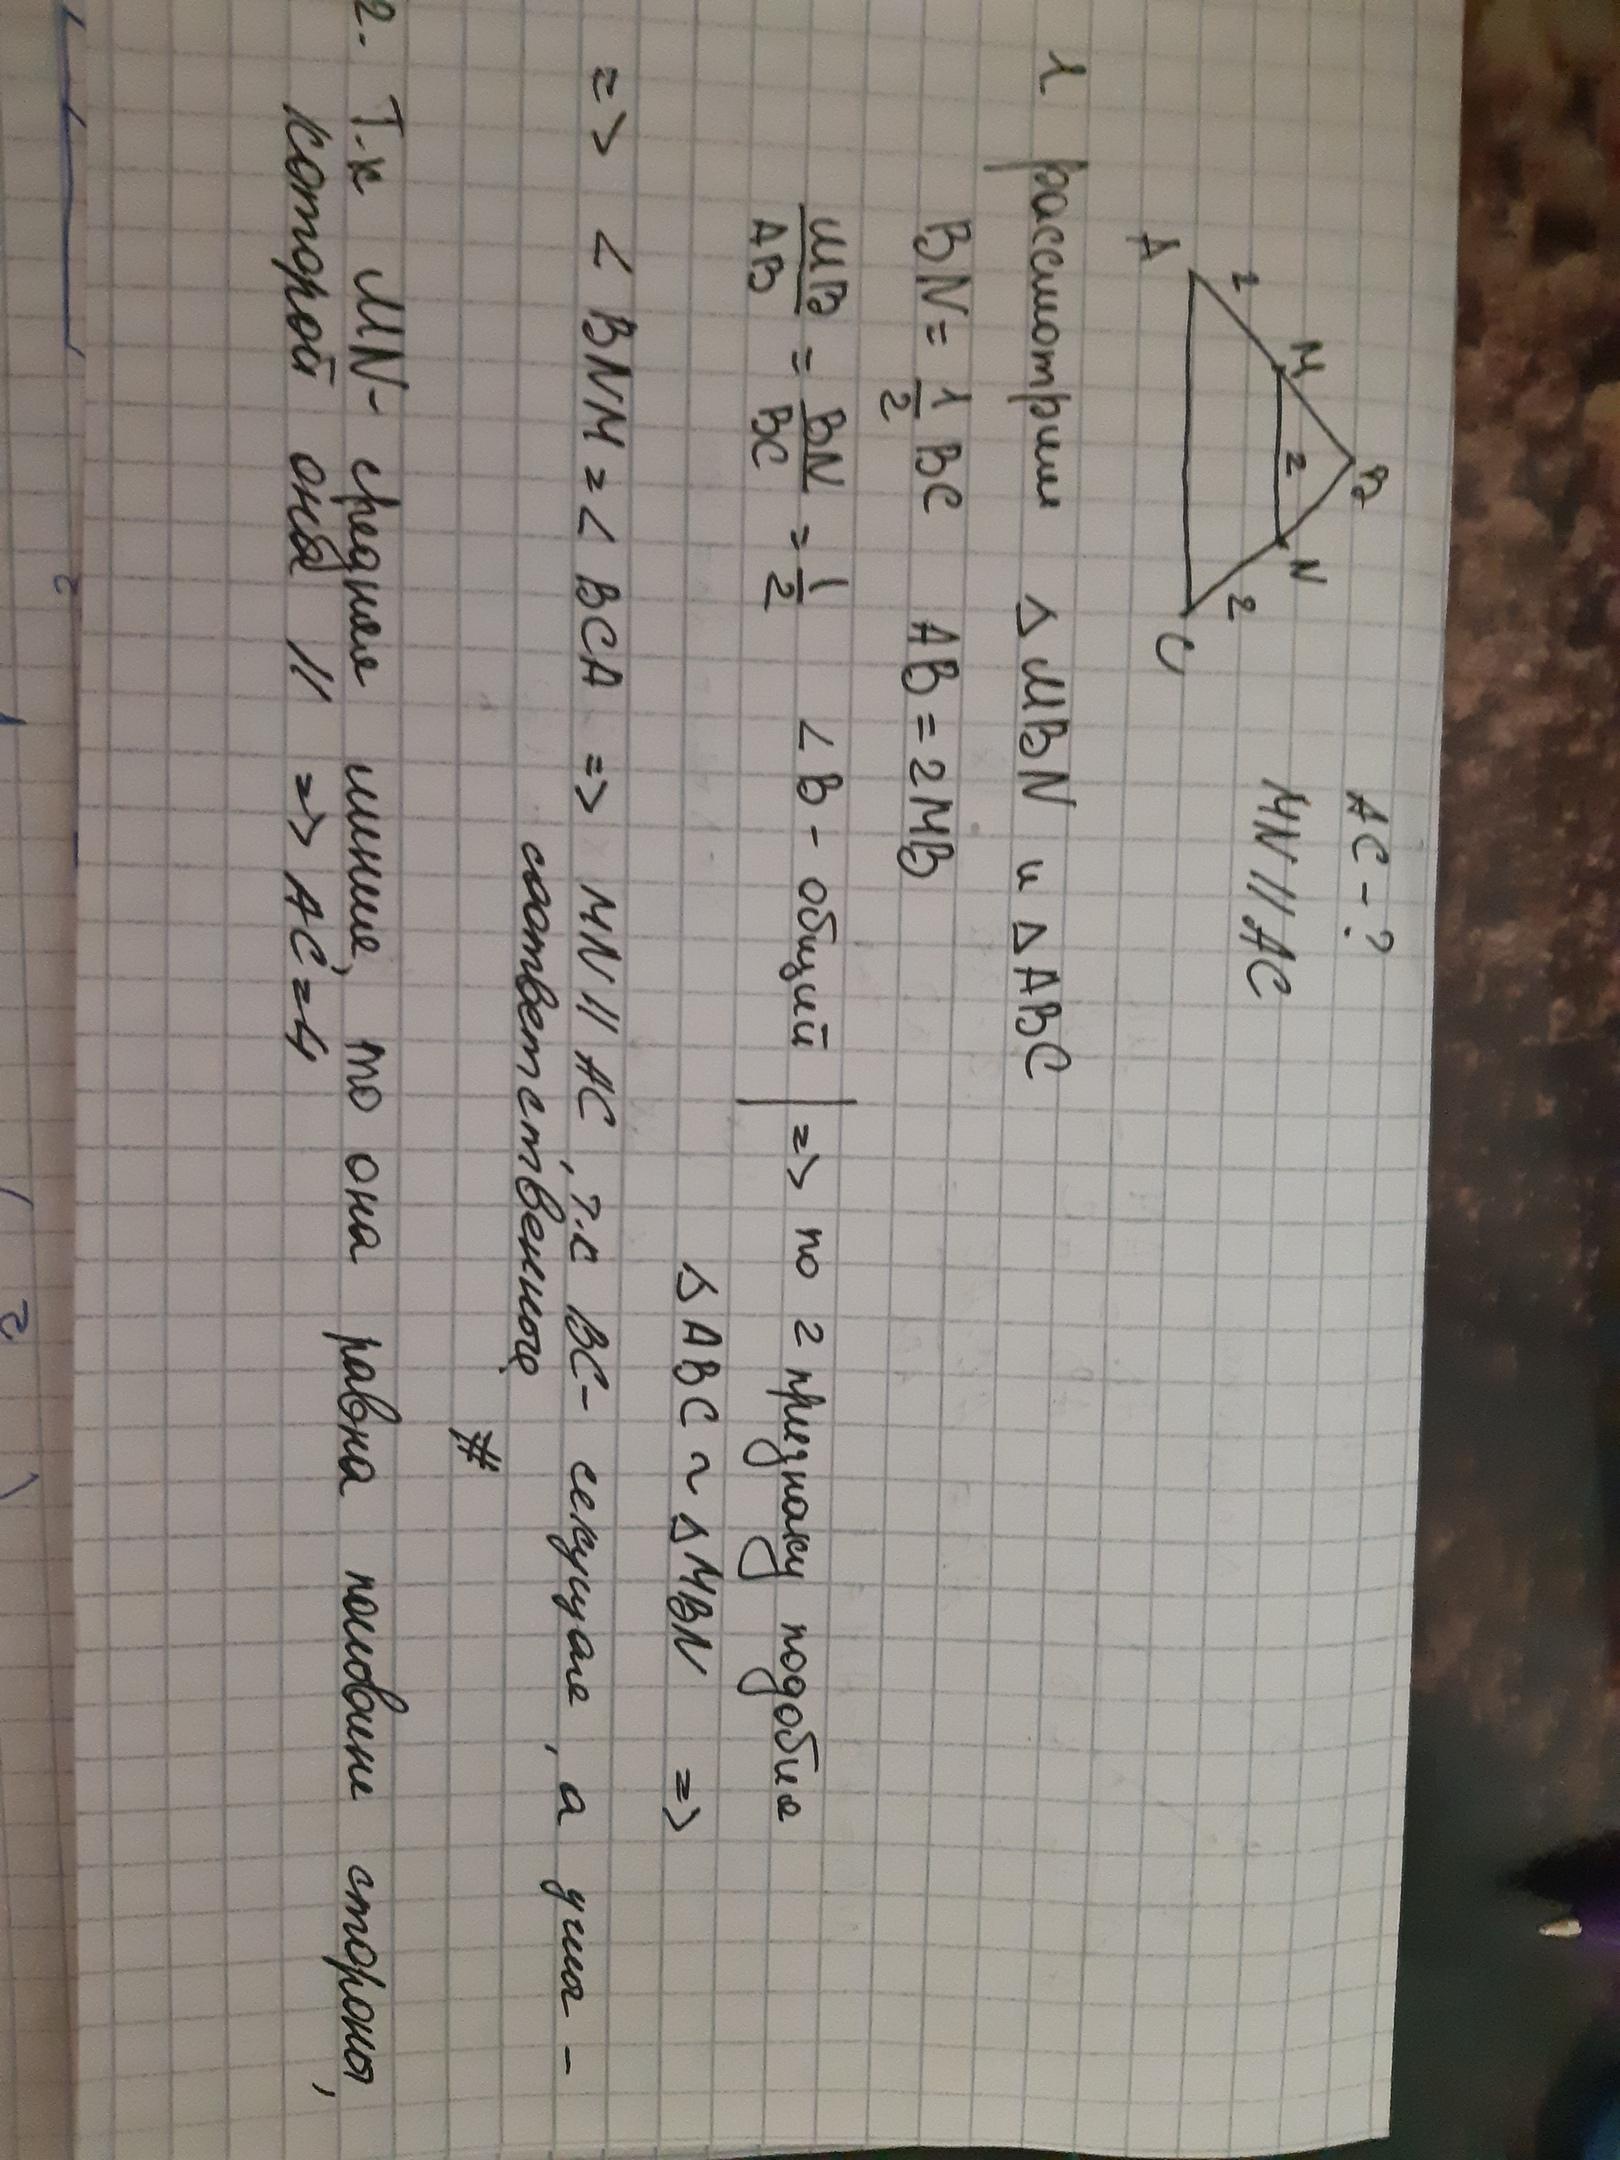 AC - ?
MN || AC
B
M
N
2
2
2
A
C
1 рассмотрим Δ MBN и Δ ABC
BN = 1/2 BC AB = 2MB
MB/AB = BN/BC = 1/2 ∠ B - общий | => по 2 признаку подобия
Δ ABC ~ Δ MBN =>
=> ∠ BNM = ∠ BCA => MN || AC, т.к BC - секущая, а углы -
соответственные
#
2. Т.к MN - средняя линия, то она равна половине стороны,
которой она || => AC = 4
2
2